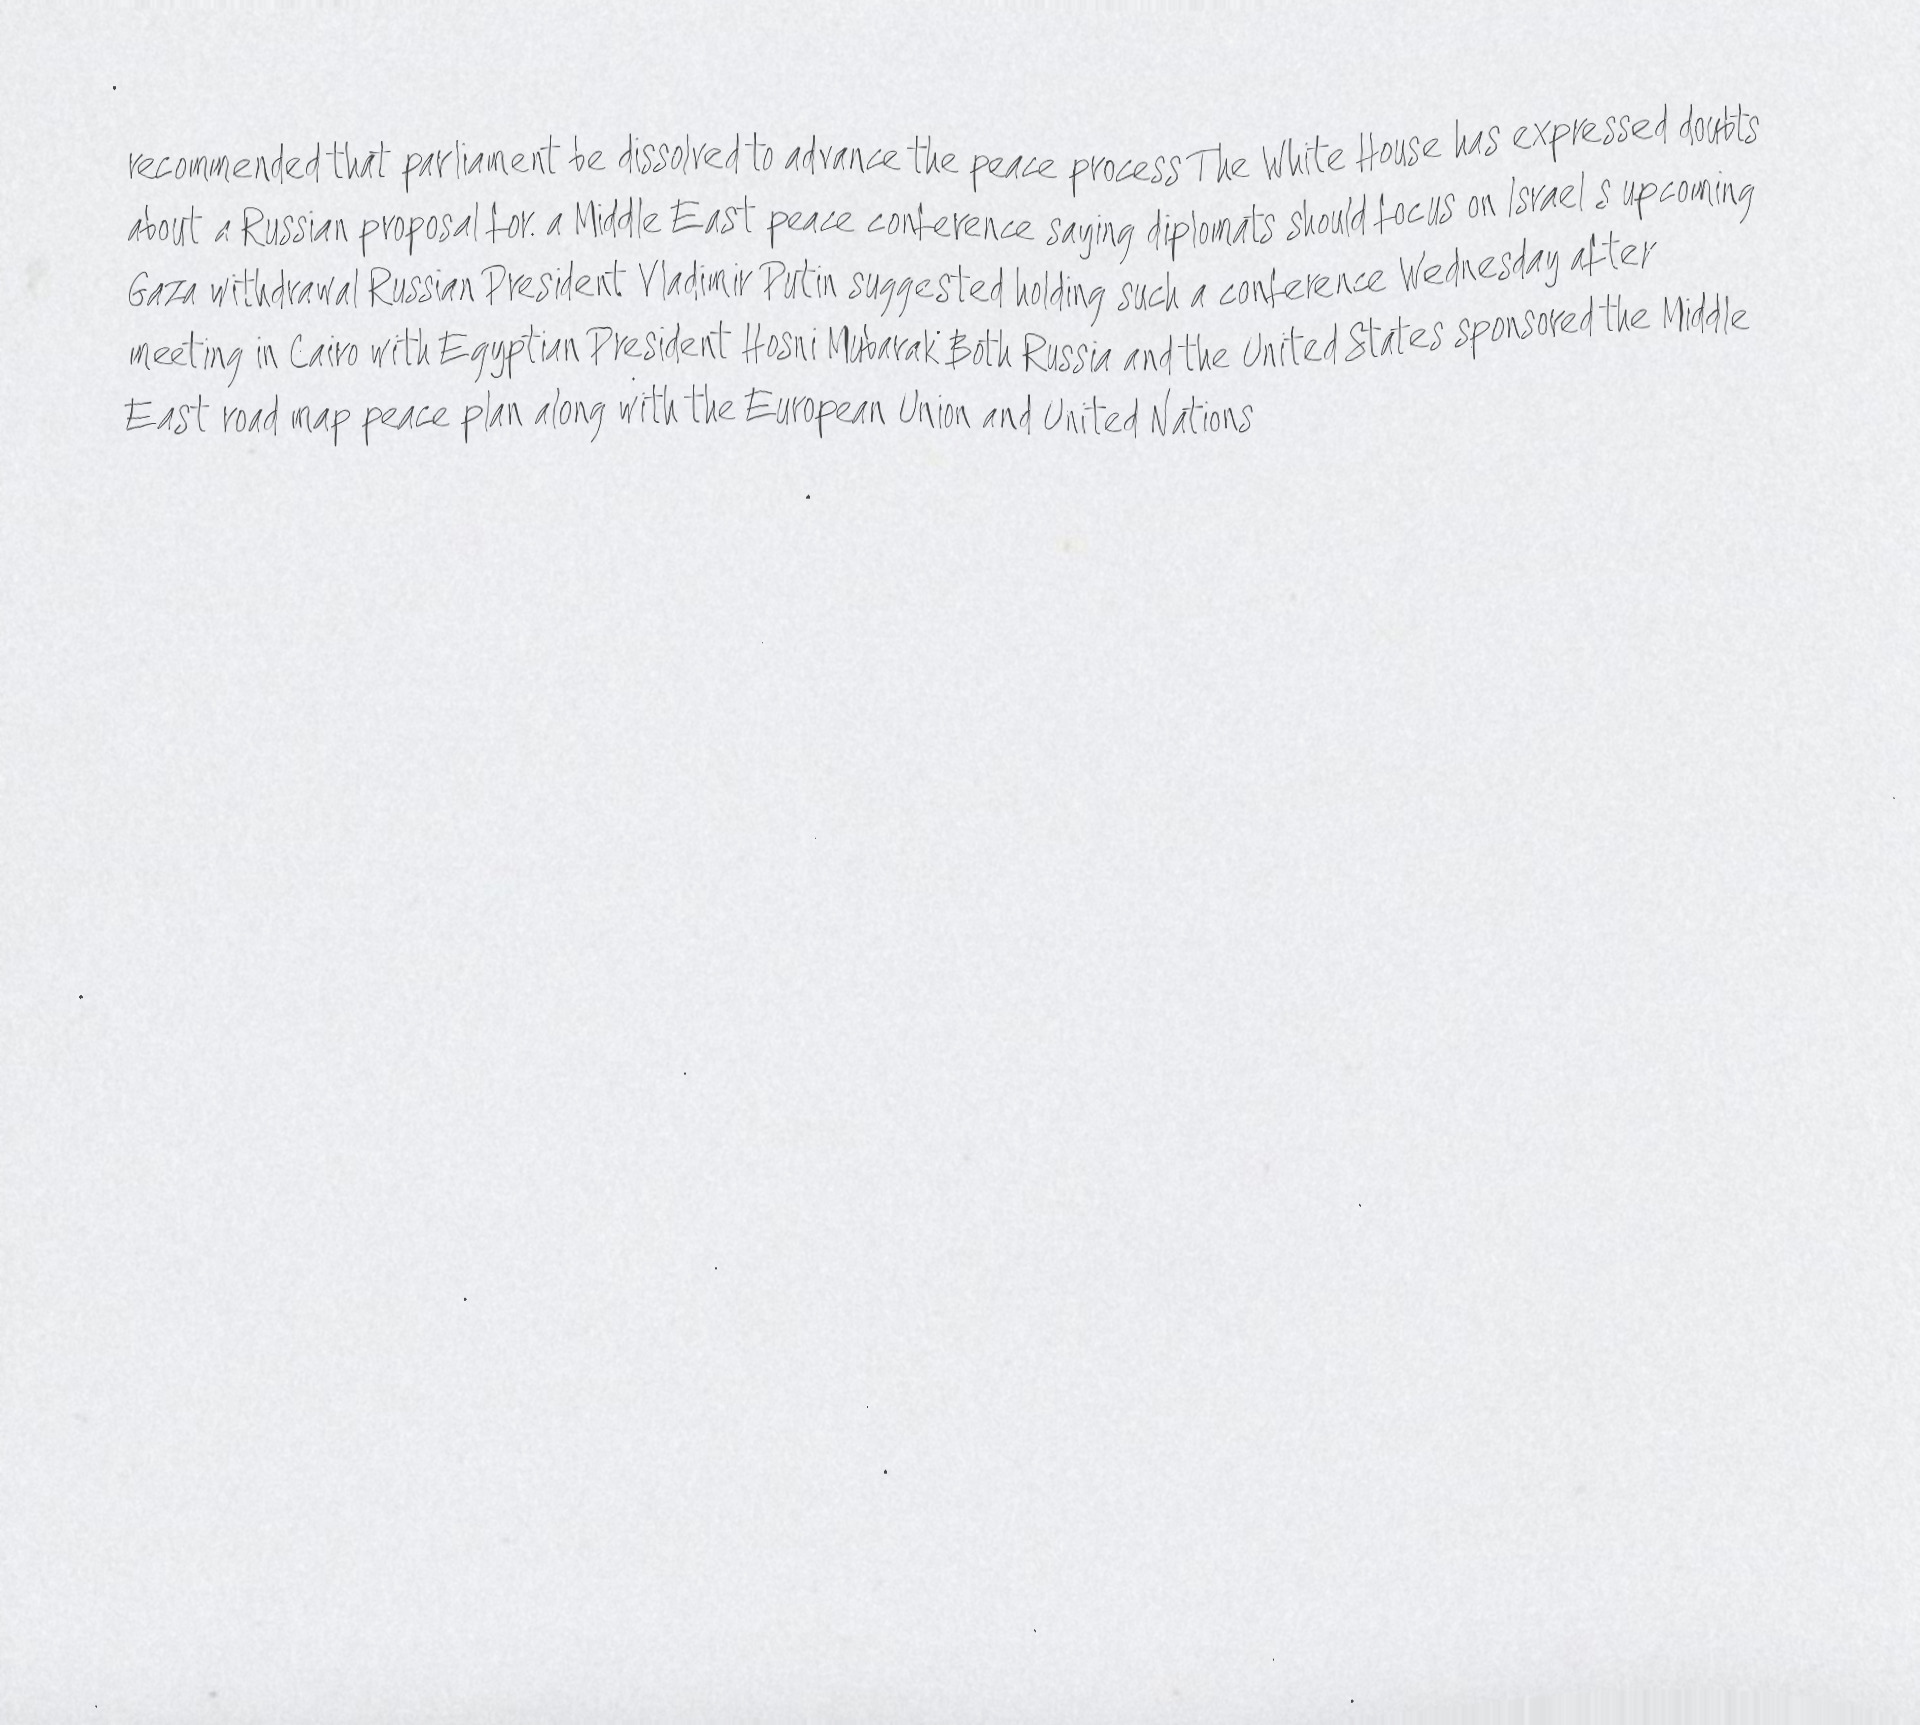 recommended that parliament be dissolved to advance the peace process The White House has expressed doubts
about a Russian proposal for a Middle East peace conference saying diplomats should focus on Israel s upcoming
Gaza withdrawal Russian President Vladimir Putin suggested holding such a conference Wednesday after
meeting in Cairo with Egyptian President Hosni Mubarak Both Russia and the United States sponsored the Middle
East road map peace plan along with the European Union and United Nations